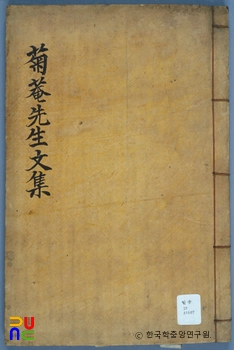 菊菴先生文集
PUNE
© 한국학중앙연구원